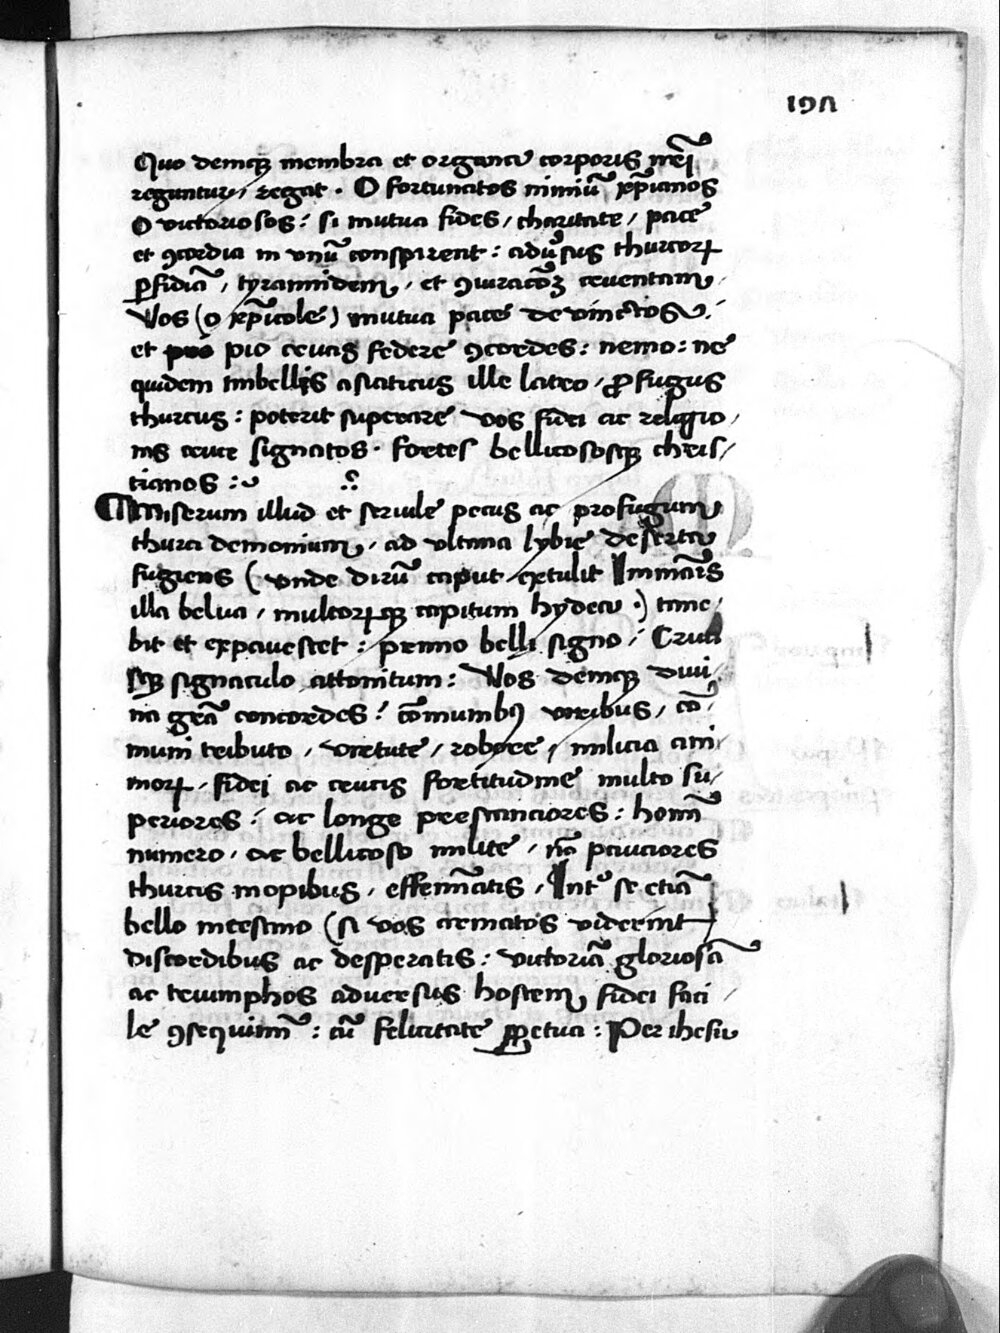 197
Quo demq₃ membra et organa corporis meꝫ
reguntur / regat · O fortunatos nimiū xp̄ianos
O victoriosos : si mutua fides / charitate / pace
et ꝯcordia in vnū conspirent : adũsus thurcoꝝ
ꝑfidiā / tyrannidem / et ꝯiuratōꝫ cruentam /
Vos (o xp̄icole) mutua pace devinctos /
et pio crucis federe ꝯcordes : nemo : ne
quidem imbellis asiaticus ille latro / ꝓfugus
thurcus : poterit superare vos fidei ac religio /
nis cruce signatos · fortes bellicososq₃ chris /
tianos :
¶ Miserum illud et servile pecus ac profugum
thurca demonium / ad vltima lybie deserta
fugiens (vnde dirū caput extulit Immāis
illa belua / multoꝝq₃ capitum hydra ·) time /
bit et expavescet : primo belli signo / Cruci
sq₃ signaculo attonitum : Vos demq₃ divi /
na grā concordes : cōmunibꝰ viribus / cō /
muni tributo / virtute / robore / milicia ani
moꝝ / fidei ac crucis fortitudine multo su /
periores : ac longe prestanciores : homī
numero / ac bellicoso milite / nō pauciores
thurcis inopibus / effemīatis / Intꝰ se etiā
bello intestino (si vos armatos viderint)
discordibus ac desperatis : victoriā gloriosā
ac triumphos adversus hostem fidei faci /
le ꝯsequimī : cū felicitate ꝑpetua : Per ihesu